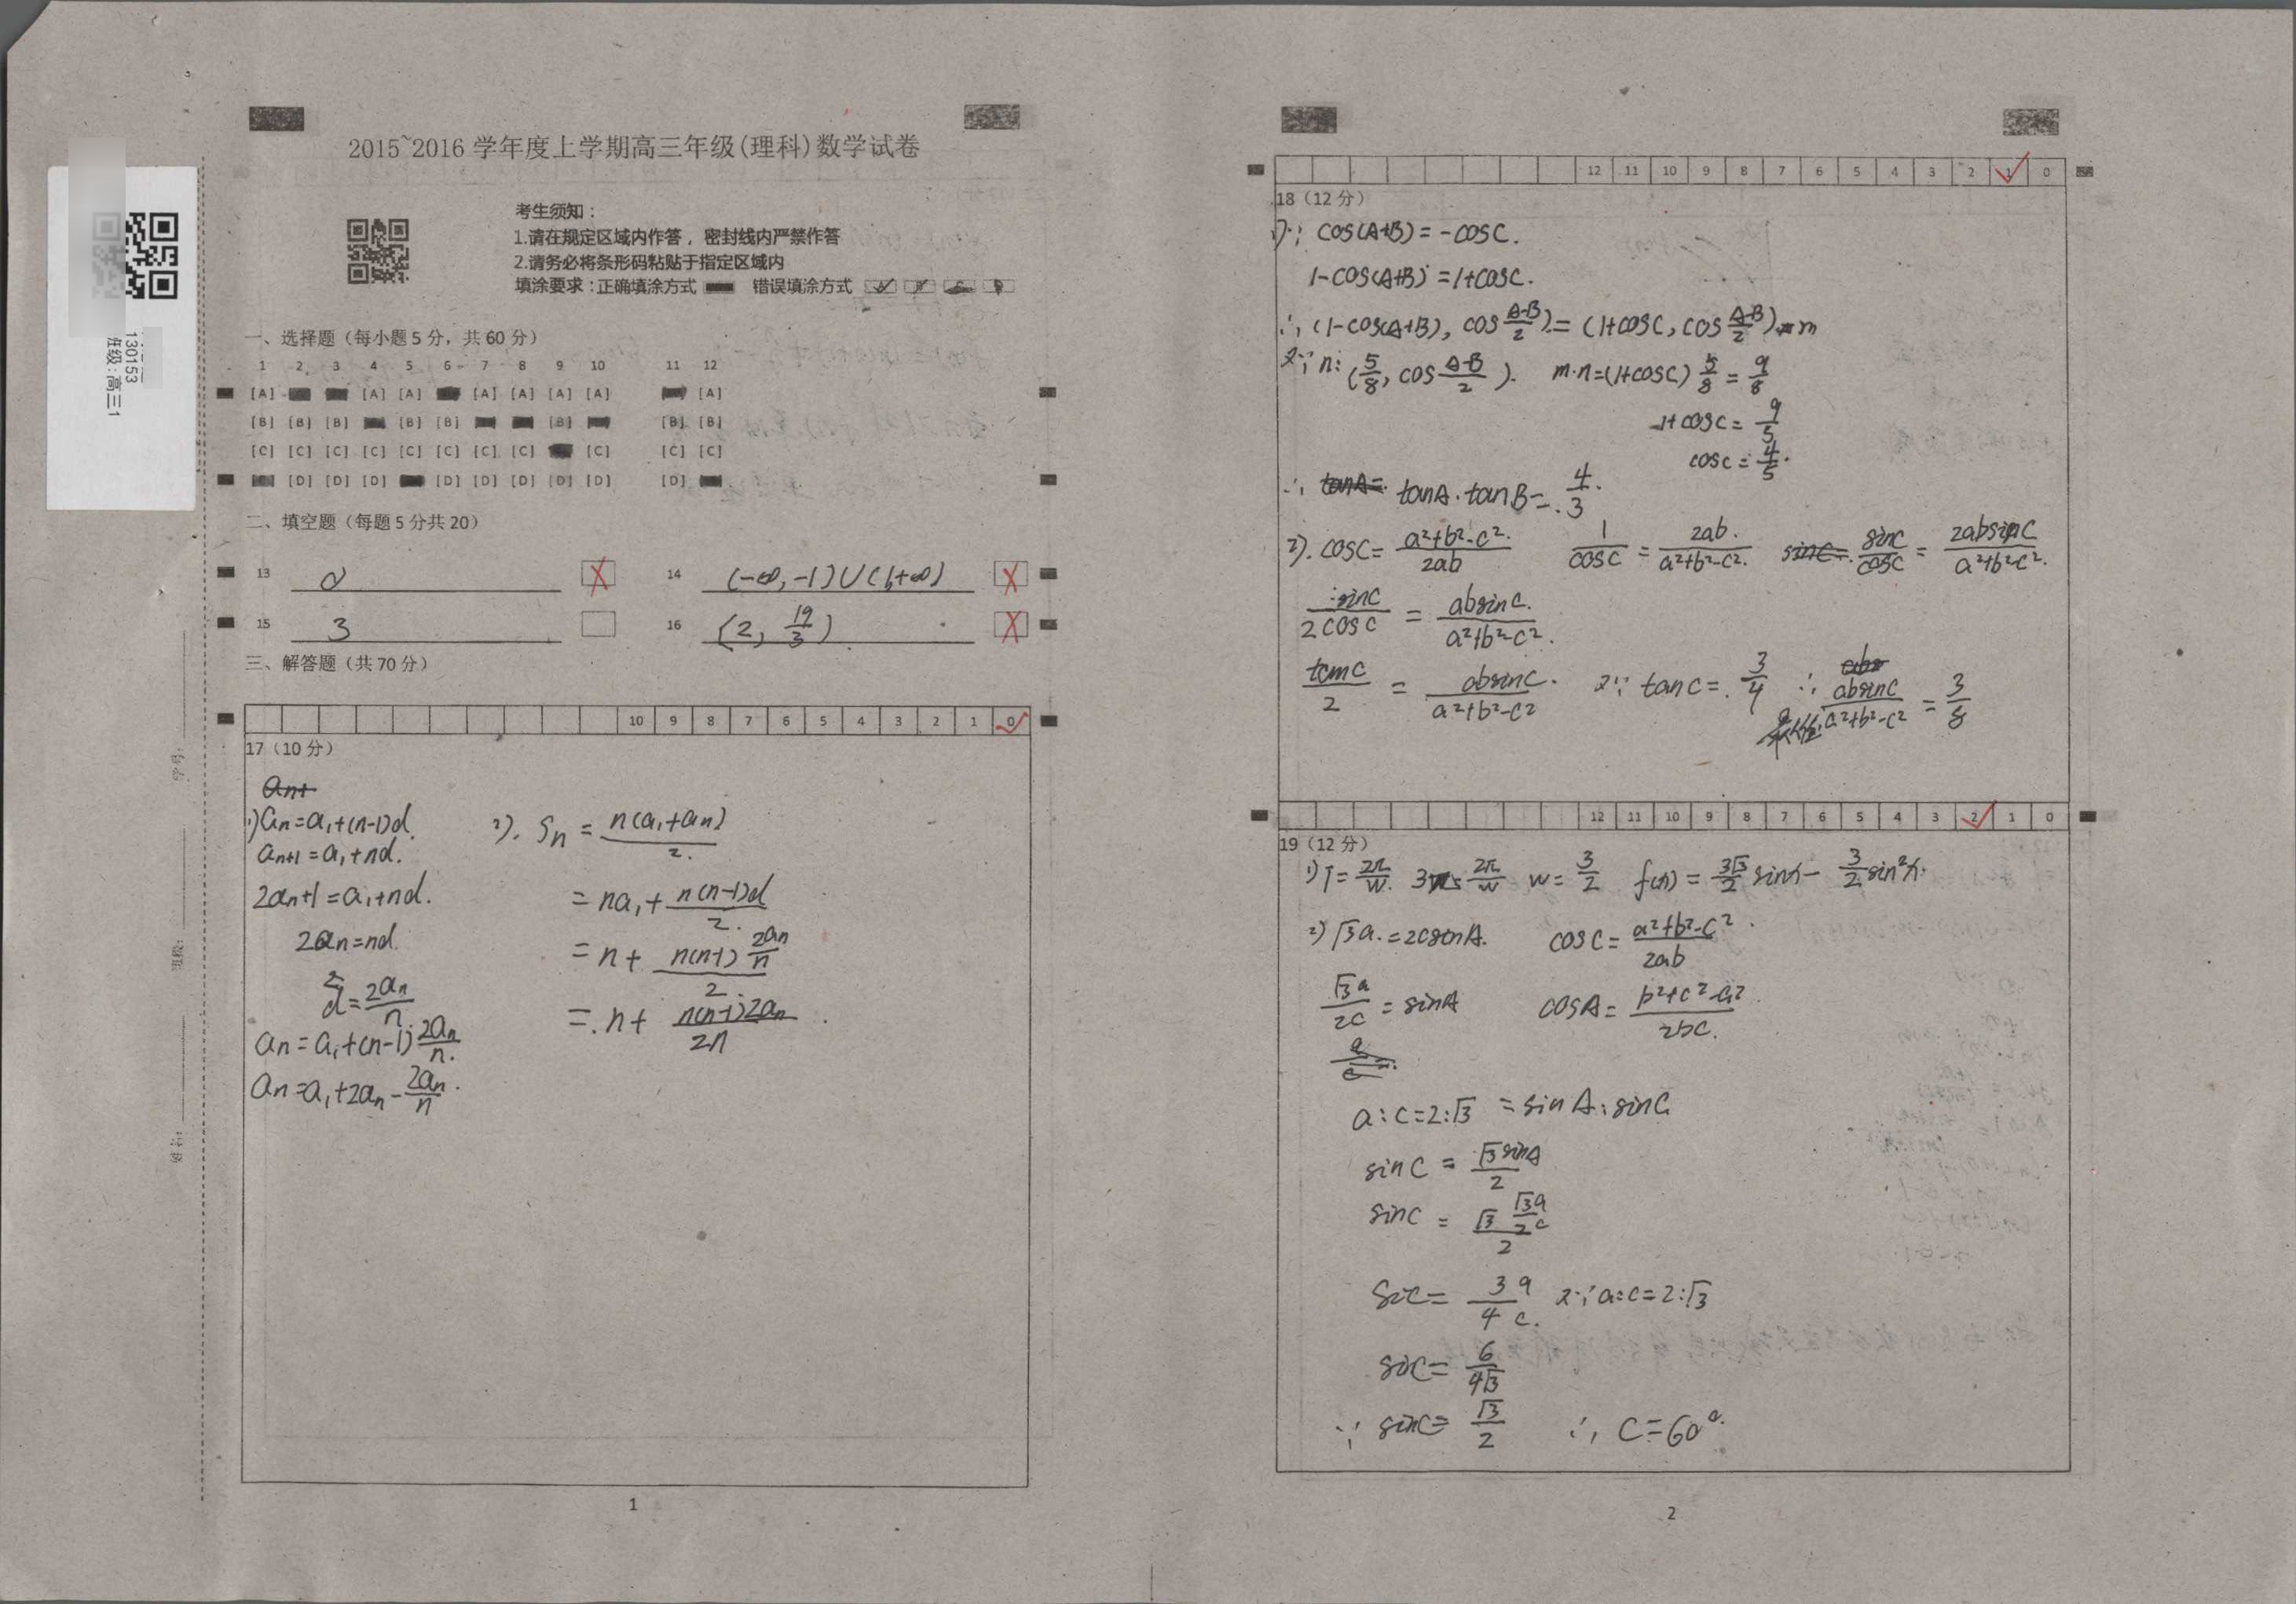 2015~2016 学年度上学期高三年级(理科)数学试卷
考生须知：
1.请在规定区域内作答，密封线内严禁作答
2.请务必将条形码粘贴于指定区域内
填涂要求：正确填涂方式 错误填涂方式
130153
班级：高三1
一、选择题（每小题 5 分，共 60 分）
1 2 3 4 5 6 7 8 9 10 11 12
[A] [A] [A] [A] [A] [A] [A] [A]
[B] [B] [B] [B] [B] [B] [B] [B]
[C] [C] [C] [C] [C] [C] [C] [C] [C] [C] [C]
[D] [D] [D] [D] [D] [D] [D] [D] [D]
二、填空题（每题 5 分共 20）
13 0
14 (-∞,-1)∪(1,+∞)
15 3
16 (2, 19/3)
三、解答题（共 70 分）
10 9 8 7 6 5 4 3 2 1 0
17（10 分）
1) an=a1+(n-1)d.
an+1=a1+nd.
2an+1=a1+nd.
2an=nd.
d=2an/n
an=a1+(n-1)2an/n.
an=a1+2an-2an/n.
2). Sn=n(a1+an)/2.
=na1+n(n-1)d/2.
=n+n(n-1)2an/n/2
=.n+n(n-1)2an/2n.
学号：
班级：
姓名：
1
12 11 10 9 8 7 6 5 4 3 2 1 0
18（12 分）
1)∵ cos(A+B)=-cosC.
1-cos(A+B)=1+cosC.
∴(1-cos(A+B), cos A-B/2)=(1+cosC, cos A-B/2)=m
又∵n:(5/8, cos A-B/2). m·n=(1+cosC)5/8=9/8
1+cosC=9/5
cosC=4/5.
∴ tanA·tanB=4/3.
2). cosC=a²+b²-c²/2ab 1/cosC=2ab/a²+b²-c². sinC/cosC=2absinC/a²+b²-c².
sinC/2cosC=absinC/a²+b²-c².
tanC/2=absinC/a²+b²-c². 又∵tanC=3/4 ∴absinC/a²+b²-c²=3/8
12 11 10 9 8 7 6 5 4 3 2 1 0
19（12 分）
1) T=2π/w. 3π=2π/w w=3/2 f(x)=3√3/2 sinx-3/2 sin²x.
2) √3a.=2csinA. cosC=a²+b²-c²/2ab
√3a/2c=sinA cosA=b²+c²-a²/2bc.
a:c=2:√3=sinA:sinC
sinC=√3sinA/2
sinC=√3 √3a/2c/2
sinC=3a/4c. 又∵a:c=2:√3
sinC=6/4√3
∵ sinC=√3/2 ∴ C=60°.
2